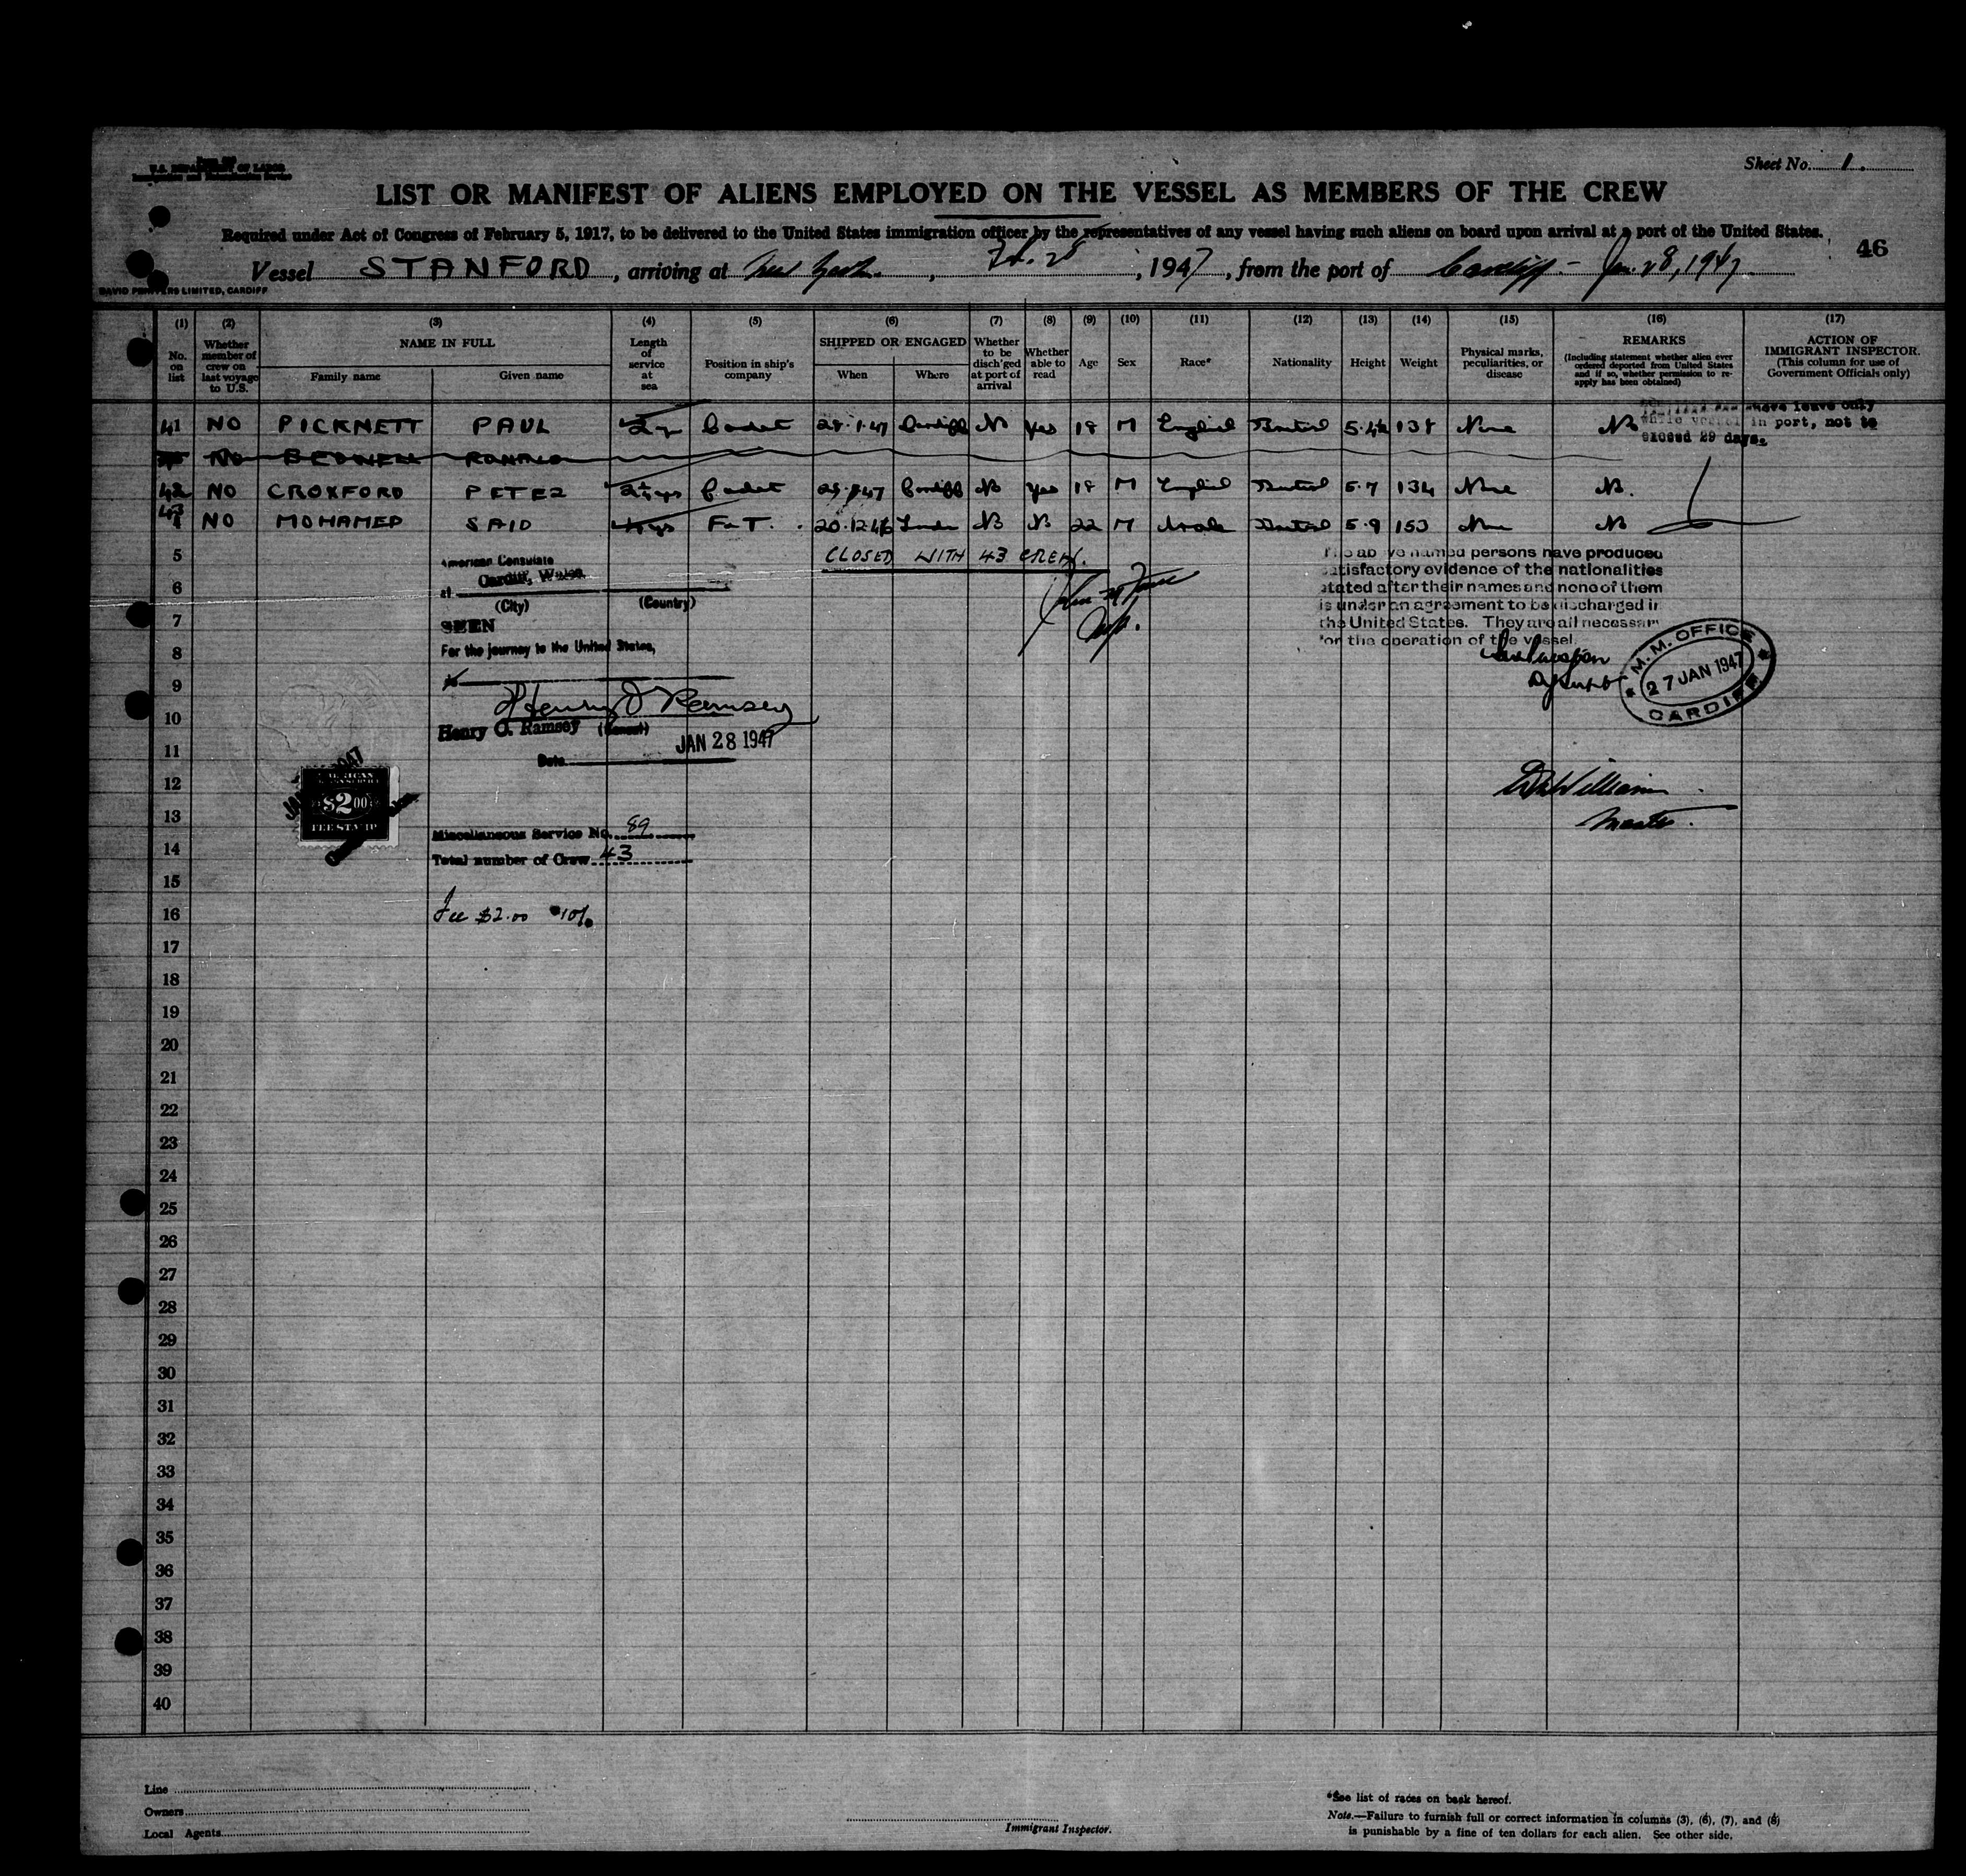 U.S. DEPARTMENT OF LABOR
Sheet No. 1.
LIST OR MANIFEST OF ALIENS EMPLOYED ON THE VESSEL AS MEMBERS OF THE CREW
Required under Act of Congress of February 5, 1917, to be delivered to the United States immigration officer by the representatives of any vessel having such aliens on board upon arrival at a port of the United States.
46
Vessel STANFORD, arriving at New York, Feb. 28, 1947, from the port of Cardiff - Jan. 28, 1947
DAVID PRINTERS LIMITED, CARDIFF
(1) (2) (3) (4) (5) (6) (7) (8) (9) (10) (11) (12) (13) (14) (15) (16) (17)
No. on list
Whether member of crew on last voyage to U.S.
NAME IN FULL
Family name
Given name
Length of service at sea
Position in ship's company
SHIPPED OR ENGAGED
When
Where
Whether to be disch'ged at port of arrival
Whether able to read
Age
Sex
Race*
Nationality
Height
Weight
Physical marks, peculiarities, or disease
REMARKS
(Including statement whether alien ever ordered deported from United States and if so, whether permission to re-apply has been obtained)
ACTION OF IMMIGRANT INSPECTOR.
(This column for use of Government Officials only)
41 NO PICKNETT PAUL Cadet 28.1.47 Cardiff No Yes 18 M English British 138 None No
shore leave only
while vessel in port, not to
exceed 29 days.
NO BEDWELL RONALD
42 NO CROXFORD PETER Cadet Cardiff No Yes 18 M English British 5.7 134 None No.
43 NO MOHAMED SAID 4 yrs F.T. 20.12.46 No No 22 M Arab British 5.9 153 None No
5 CLOSED WITH 43 CREW.
American Consulate
at Cardiff, Wales
(City) (Country)
SEEN
For the journey to the United States,
Henry O Ramsey
Henry O. Ramsey (Consul)
Date JAN 28 1947
The above named persons have produced
satisfactory evidence of the nationalities
stated after their names and none of them
is under an agreement to be discharged in
the United States. They are all necessary
for the operation of the vessel.
M.M. OFFICE
27 JAN 1947
CARDIFF
Williams
Master.
AMERICAN
$2.00
FEE STAMP
Miscellaneous Service No. 89
Total number of Crew 43
Fee $2.00 10/-
6
7
8
9
10
11
12
13
14
15
16
17
18
19
20
21
22
23
24
25
26
27
28
29
30
31
32
33
34
35
36
37
38
39
40
Line
Owners
Local Agents
Immigrant Inspector.
*See list of races on back hereof.
Note.—Failure to furnish full or correct information in columns (3), (6), (7), and (8)
is punishable by a fine of ten dollars for each alien. See other side.